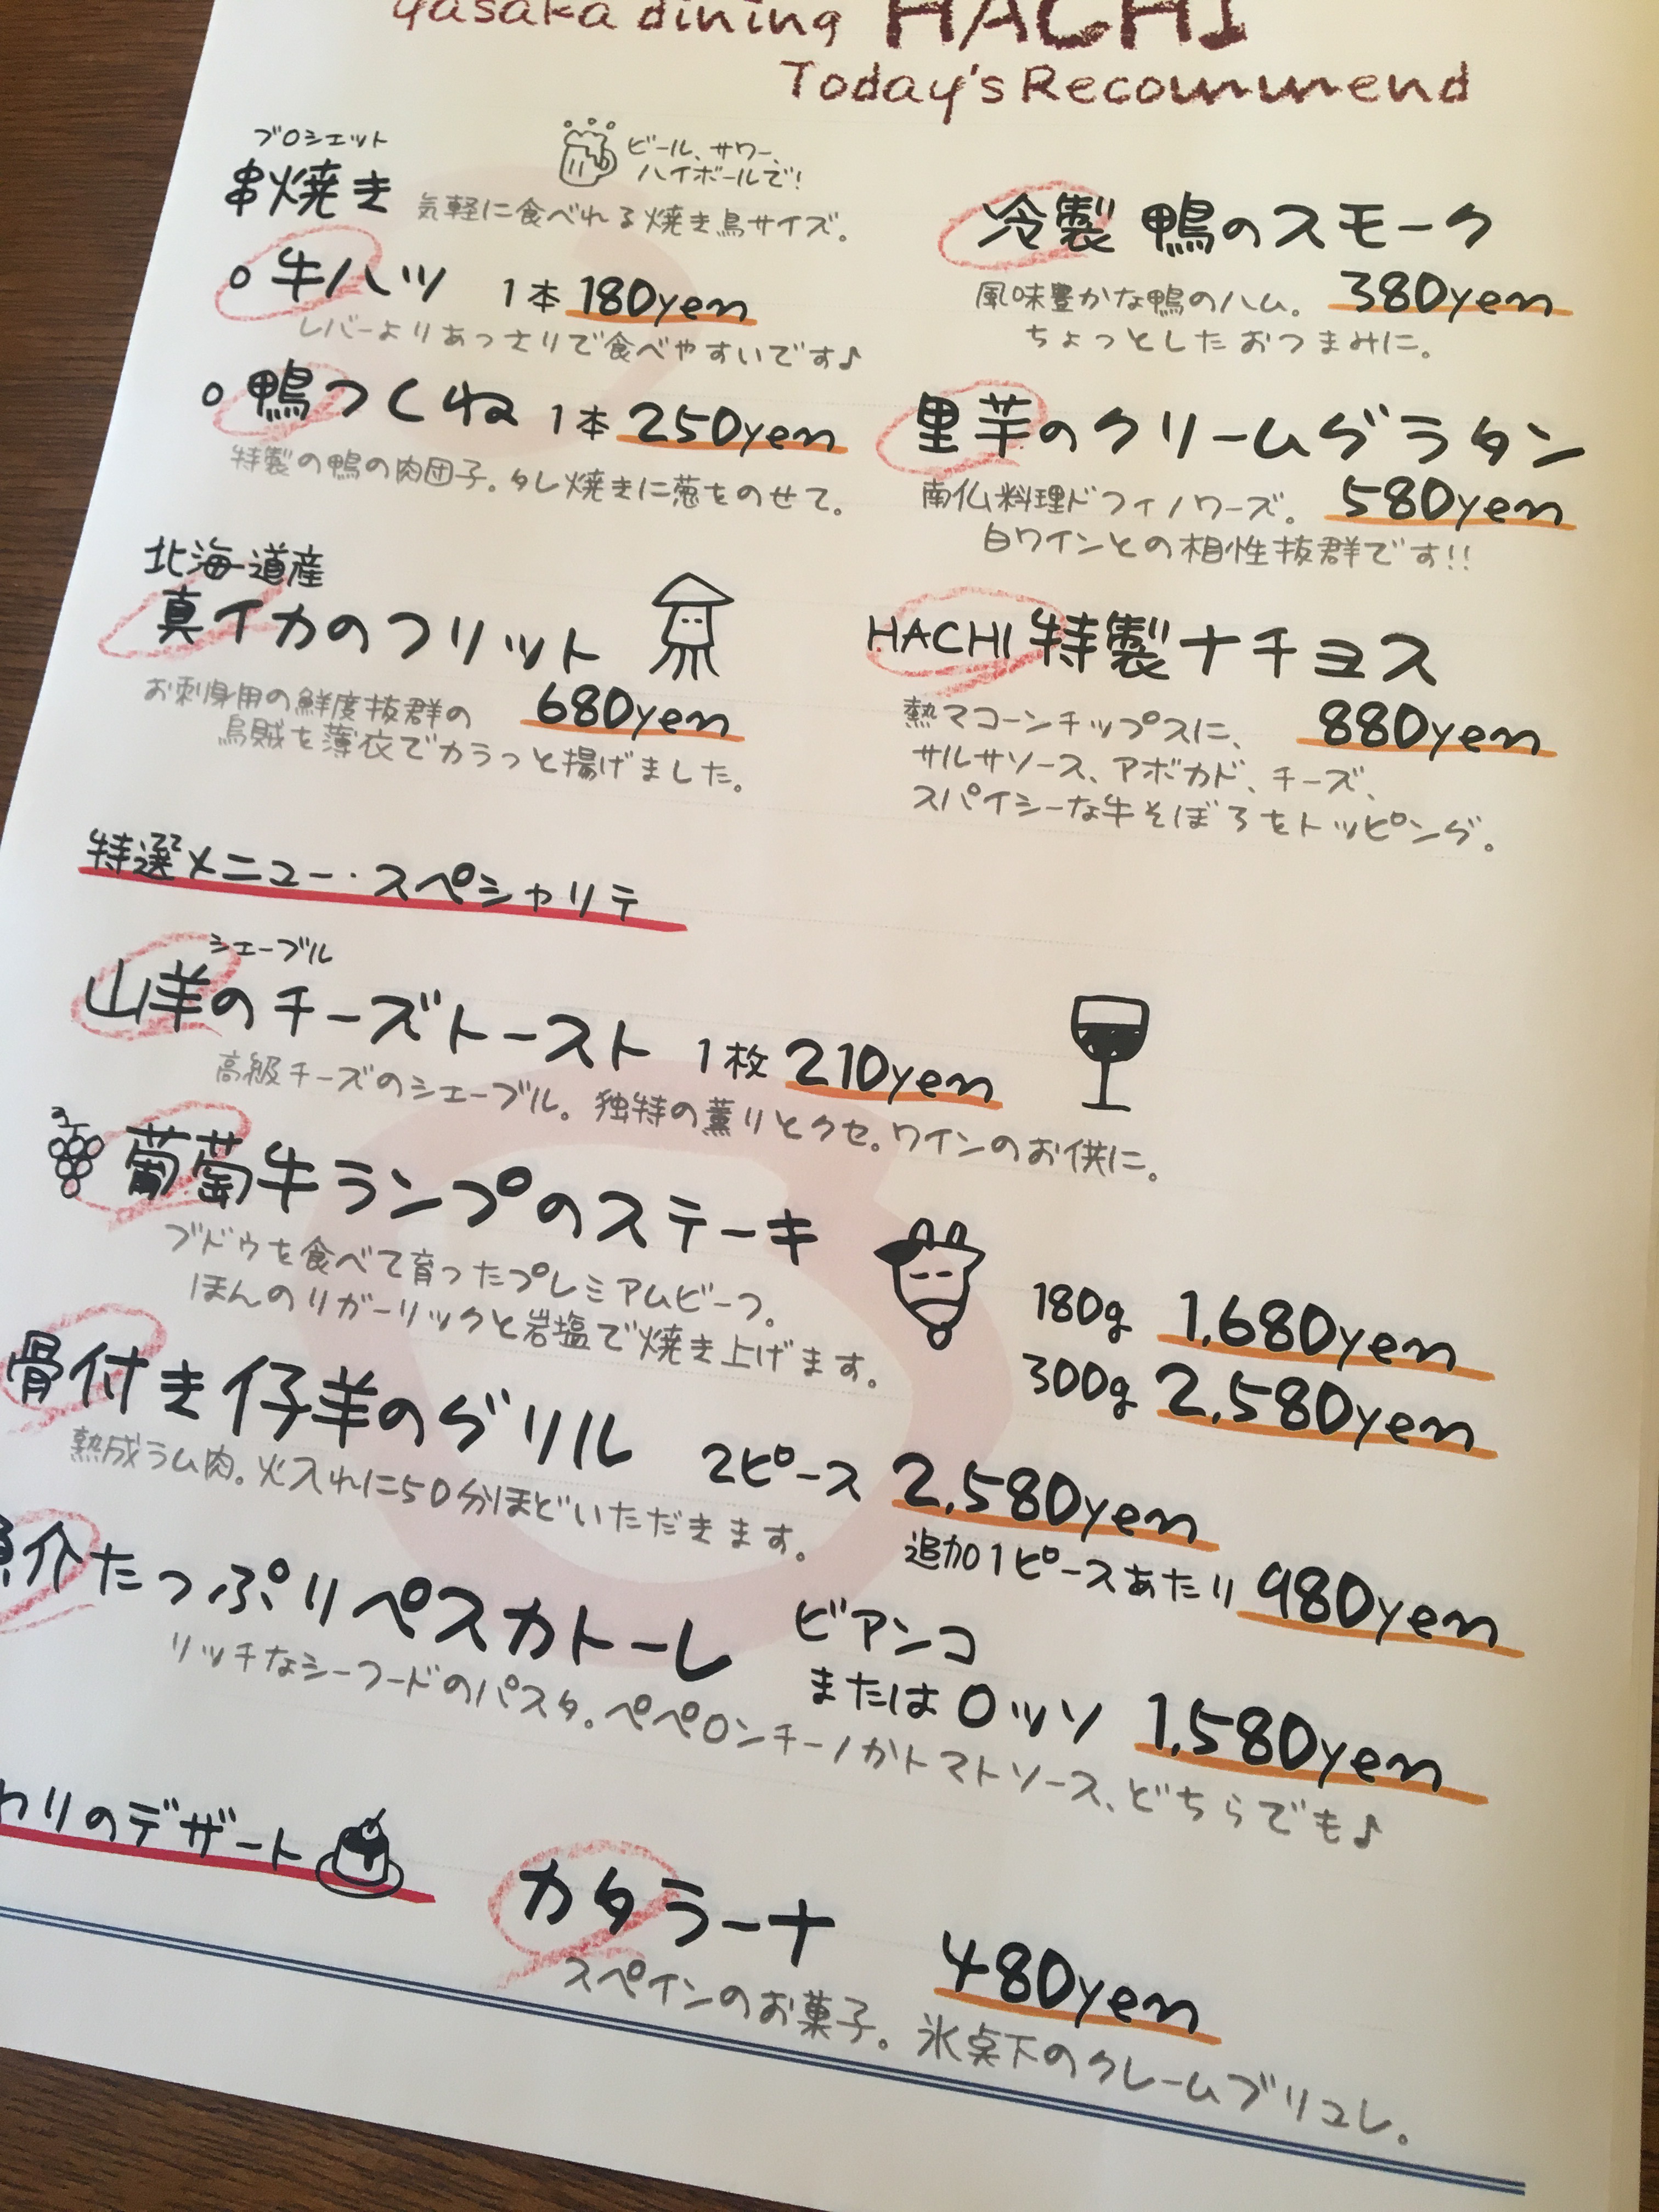 yasaka dining HACHI
Today's Recommend
ブロシェット
串焼き
ビール、サワー、
ハイボールで!
気軽に食べれる焼き鳥サイズ。
牛ハツ 1本 180yen
レバーよりあっさりで食べやすいです♪
鴨つくね 1本 250yen
特製の鴨の肉団子。タレ焼きに葱をのせて。
北海道産
真イカのフリット
680yen
お刺身用の鮮度抜群の
烏賊を薄衣でカラっと揚げました。
冷製 鴨のスモーク
風味豊かな鴨のハム。 380yen
ちょっとしたおつまみに。
里芋のクリームグラタン
南仏料理ドフィノワーズ。 580yen
白ワインとの相性抜群です!!
HACHI 特製ナチョス
熱々コーンチップスに、 880yen
サルサソース、アボカド、チーズ、
スパイシーな牛そぼろをトッピング。
特選メニュー・スペシャリテ
シェーブル
山羊のチーズトースト 1枚 210yen
高級チーズのシェーブル。独特の薫りとクセ。ワインのお供に。
葡萄牛ランプのステーキ
ブドウを食べて育ったプレミアムビーフ。
ほんのりガーリックと岩塩で焼き上げます。
180g 1,680yen
300g 2,580yen
骨付き仔羊のグリル 2ピース 2,580yen
熟成ラム肉。火入れに50分ほどいただきます。
追加1ピースあたり 980yen
介たっぷりペスカトーレ ビアンコ
または ロッソ 1,580yen
リッチなシーフードのパスタ。ペペロンチーノかトマトソース、どちらでも♪
わりのデザート
カタラーナ 480yen
スペインのお菓子。氷点下のクレームブリュレ。